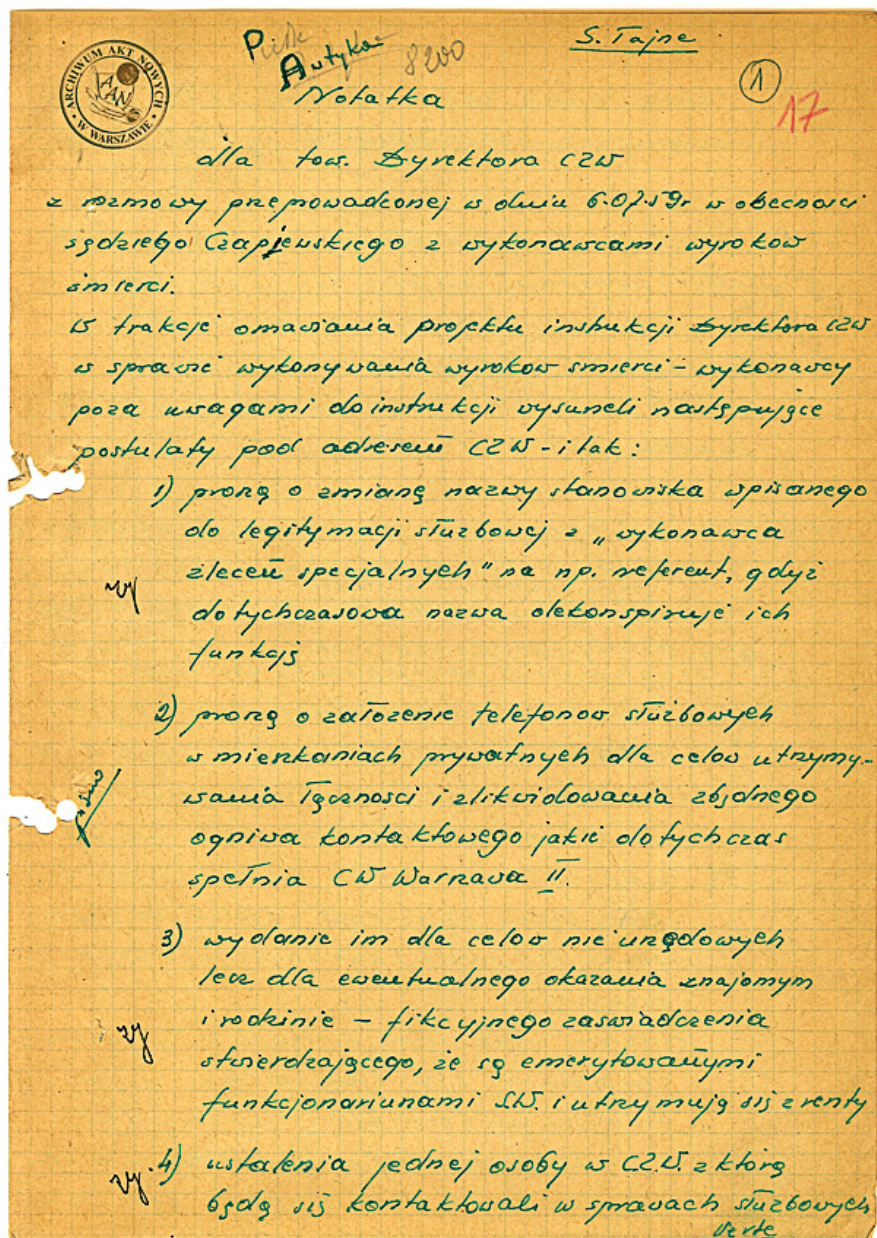 S. Tajne
Autyka 8200
1
17
ARCHIWUM AKT NOWYCH
W WARSZAWIE
AAN
Notatka
dla tow. Dyrektora CZW
z rozmowy przeprowadzonej w dniu 6.07.59r w obecności
sędziego Czapjewskiego z wykonawcami wyrokow
śmierci.
W trakcje omawiania projektu instrukcji Dyrektora CZW
w sprawie wykonywania wyrokow smierci - wykonawcy
poza uwagami do instrukcji wysuneli następujące
postulaty pod adresem CZW - i tak:
1) proszą o zmianę nazwy stanowiska wpisanego
do legitymacji służbowej z „wykonawca
zleceń specjalnych" na np. referent, gdyż
dotychczasowa nazwa dekonspiruje ich
funkcję
2) proszą o założenie telefonow służbowych
w mieszkaniach prywatnych dla celow utrzymy-
wania łączności i zlikwidowania zbędnego
ogniwa kontaktowego jakie dotychczas
spełnia CW Warszawa II.
3) wydanie im dla celow nie urzędowych
lecz dla ewentualnego okazania znajomym
i rodzinie - fikcyjnego zaswiadczenia
stwierdzającego, że są emerytowanymi
funkcjonariuszami SW. i utrzymują się z renty
4) ustalenia jednej osoby w CZ.W. z którą
będą się kontaktowali w sprawach służbowych
verte